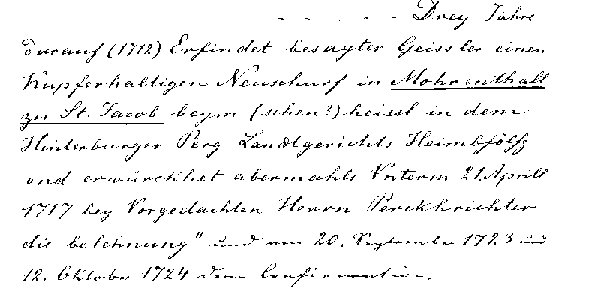 - - - - - Drey Jahre
darauf (1712) Erfindet besagter Geissler einen
Kupferhaltigen Neuschurf in Mohrenthall
zu St. Jacob beym (sehen?) heisst in dem
Hinterburger Perg Landtgerichts Heimbfölß
und erwürckhet abermahls Vnterm 21 Aprill
1717 bey Vorgedachten Herrn Perckhrichter
die belehnung" und am 20. September 1723 und
12. Oktober 1724 dem Confirmation.